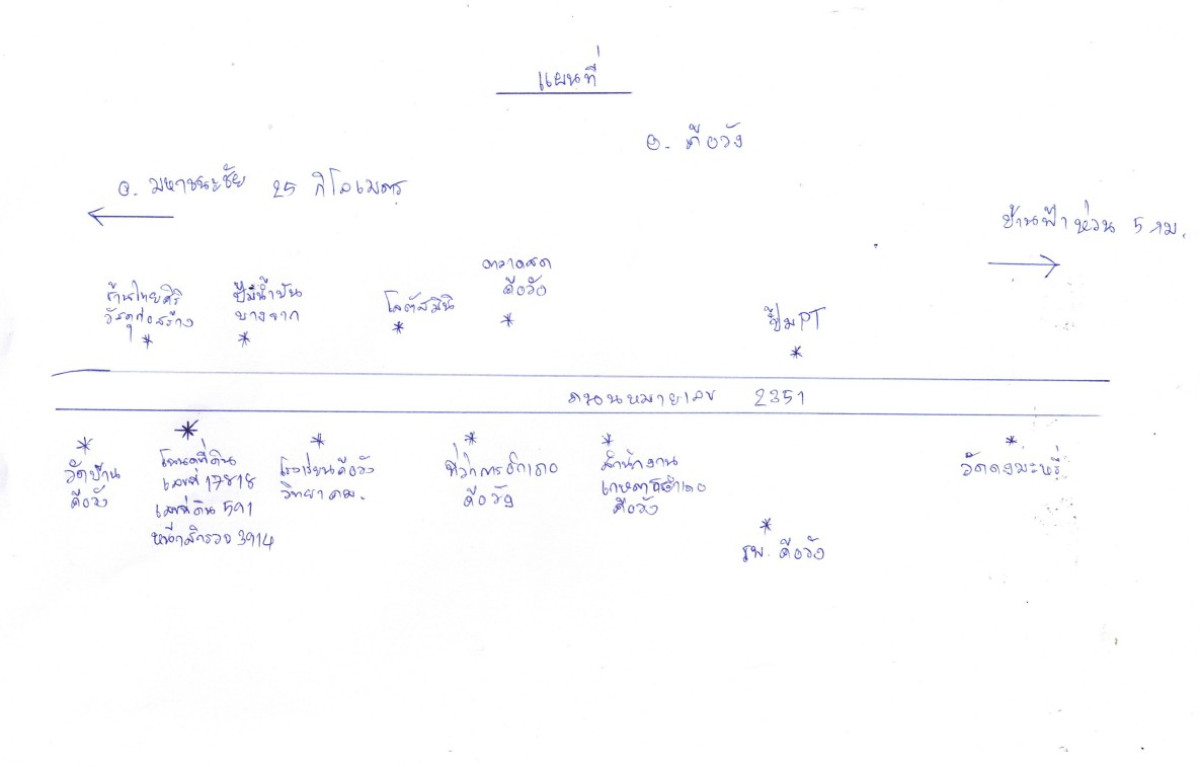 แผนที่
อ. ค้อวัง
อ. มหาชนะชัย 25 กิโลเมตร
บ้านฟ้าห่วน 5 กม.
ร้านไทยศิริ
วัสดุก่อสร้าง
ปั๊มน้ำมัน
บางจาก
โลตัสมินิ
ตลาดสด
ค้อวัง
ปั๊ม PT
ถนนหมายเลข 2351
วัดบ้าน
ค้อวัง
โฉนดที่ดิน
เลขที่ 17818
เลขที่ดิน 591
หน้าสำรวจ 3914
โรงเรียนค้อวัง
วิทยาคม.
ที่ว่าการอำเภอ
ค้อวัง
สำนักงาน
เกษตรอำเภอ
ค้อวัง
รพ. ค้อวัง
วัดดงมะหรี่